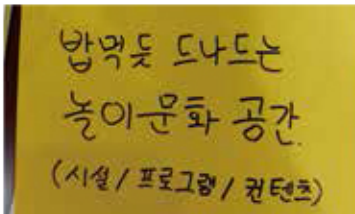 밥먹듯 드나드는
놀이문화 공간.
(시설/프로그램/컨텐츠)